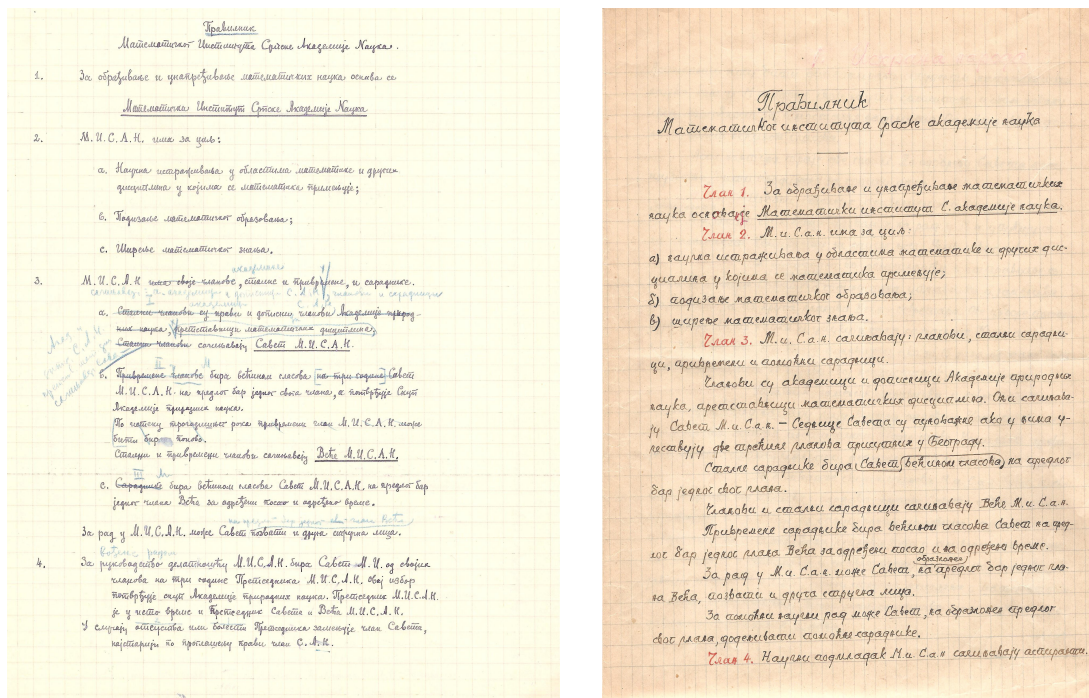 Правилник
Математичког Института Српске Академије Наука.
1. За обрађивање и унапређивање математичких наука оснива се
Математички Институт Српске Академије Наука
2. М.И.С.А.Н. има за циљ:
а. Научна истраживања у областима математике и других
дисциплина у којима се математика примењује;
б. Подизање математичког образовања;
с. Ширење математичког знања.
академике
3. М.И.С.А.Н има своје чланове, сталне и привремене, и сараднике.
а. Стални чланови су прави и дописни чланови Академије природ-
них наука, претставници математичких дисциплина,
Стални чланови сачињавају Савет М.И.С.А.Н.
II
б. Привремене чланове бира већином гласова на три године Савет
М.И.С.А.Н. на предлог бар једног свога члана, а потврђује Скуп
Академије природних наука.
По истеку трогодишњег рока привремени члан М.И.С.А.Н. може
бити биран поново.
Стални и привремени чланови сачињавају Веће М.И.С.А.Н.
III
с. Сараднике бира већином гласова Савет М.И.С.А.Н. на предлог бар
једног члана Већа за одређени посао и одређено време.
на предлог бар једног свог члана Већа
За рад у М.И.С.А.Н. може Савет позвати и друга стручна лица.
4. За руководство делатношћу М.И.С.А.Н. бира Савет М.И. од својих
чланова на три године Претседника М.И.С.А.Н. Овај избор
потврђује скуп Академије природних наука. Претседник М.И.С.А.Н.
је у исто време и Претседник Савета и Већа М.И.С.А.Н.
У случају отсуства или болести Претседника замењује члан Савета,
најстарији по проглашењу прави члан С.А.Н.
Правилник
Математичког института Српске академије наука
Члан 1. За обрађивање и унапређивање математичких
наука оснивa се Математички институт С. академије наука.
Члан 2. М.и С.а.н. има за циљ:
а) научна истраживања у областима математике и других дис-
циплина у којима се математика примењује;
б) подизање математичког образовања;
в) ширење математичког знања.
Члан 3. М.и. С.а.н. сачињавају: чланови, стални сарадни-
ци, привремени и помоћни сарадници.
Чланови су академици и дописници Академије природних
наука, претставници математичких дисциплина. Они сачињава-
ју Савет М.и С.а.н. – Седнице Савета су пуноважне ако у њима у-
чествују две трећине чланова присутних у Београду.
Сталне сараднике бира Савет већином гласова на предлог
бар једног свог члана.
Чланови и стални сарадници сачињавају Веће М.и С.а.н.
Привремене сараднике бира већином гласова Савет на пред-
лог бар једног члана Већа за одређени посао и на одређено време.
образложен
За рад у М.и С.а.н може Савет, на предлог бар једног чла-
на Већа, позвати и друга стручна лица.
За помоћни научни рад може Савет, на образложен предлог
свог члана, додељивати помоћне сараднике.
Члан 4. Научни подмладак М.и. С.а.н сачињавају аспиранти.